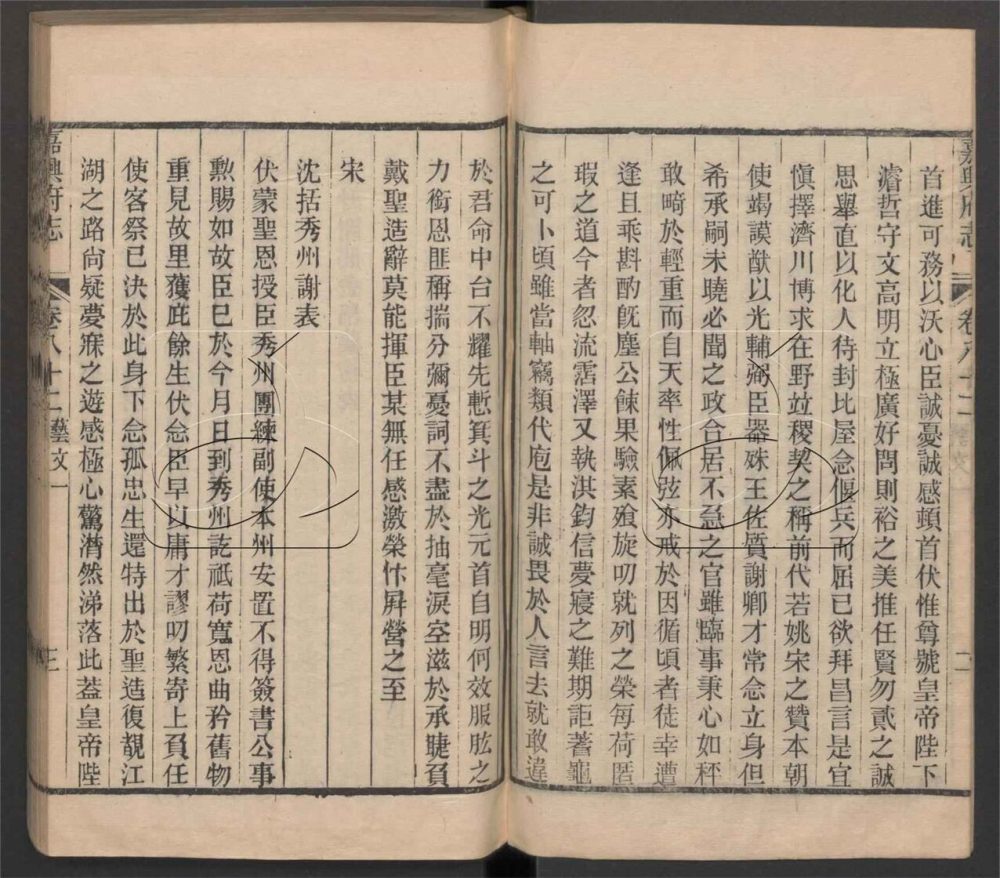 首進可務以沃心臣誠憂誠感頓首伏惟尊號皇帝陛下
濬哲守文高明立極廣好問則裕之美推任賢勿貳之誠
思舉直以化人待封比屋念偃兵而屈已欲拜昌言是宜
慎擇濟川博求在野竝稷契之稱前代若姚宋之贊本朝
使竭謨猷以光輔弼臣器殊王佐質謝卿才常念立身但
希承嗣未曉必聞之政合居不急之官雖臨事秉心如秤
敢畸於輕重而自天率性佩弦亦戒於因循頃者徒幸遭
逢且乖斟酌旣塵公餗果驗素飱旋叨就列之榮每荷匿
瑕之道今者忽流霑澤又執淇鈞信夢寢之難期詎蓍龜
之可卜頃雖當軸竊類代庖是非誠畏於人言去就敢違
於君命中台不耀先慙箕斗之光元首自明何效服肱之
力銜恩匪稱揣分彌憂詞不盡於抽毫淚空滋於承睫負
戴聖造辭莫能揮臣某無任感激榮忭屏營之至
宋
沈括秀州謝表
伏蒙聖恩授臣秀州團練副使本州安置不得簽書公事
勲賜如故臣已於今月日到秀州訖祗荷寬恩曲矜舊物
重見故里獲庇餘生伏念臣早以庸才謬叨繁寄上負任
使客祭已決於此身下念孤忠生還特出於聖造復覩江
湖之路尚疑夢寐之遊感極心驚潸然涕落此葢皇帝陛
嘉興府志 卷八十二藝文一 三